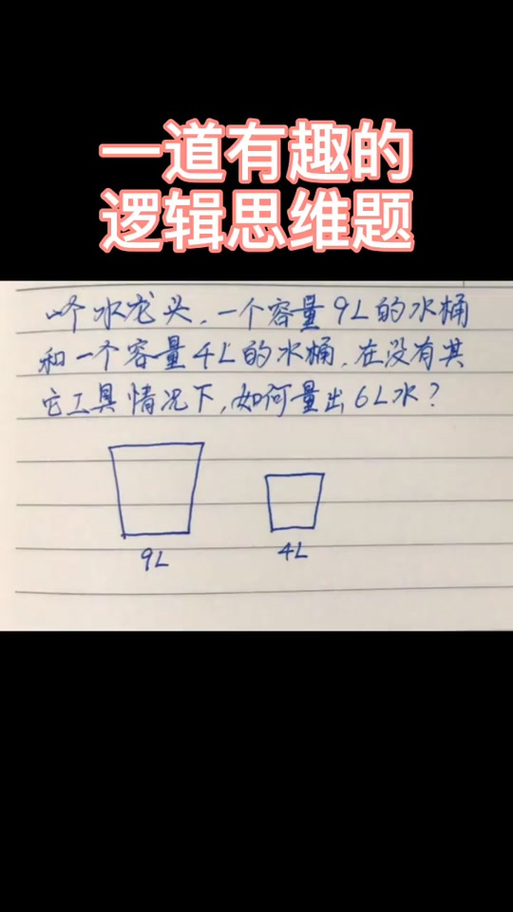 一道有趣的
逻辑思维题
一个水龙头，一个容量9L的水桶
和一个容量4L的水桶，在没有其
它工具情况下，如何量出6L水？
9L
4L